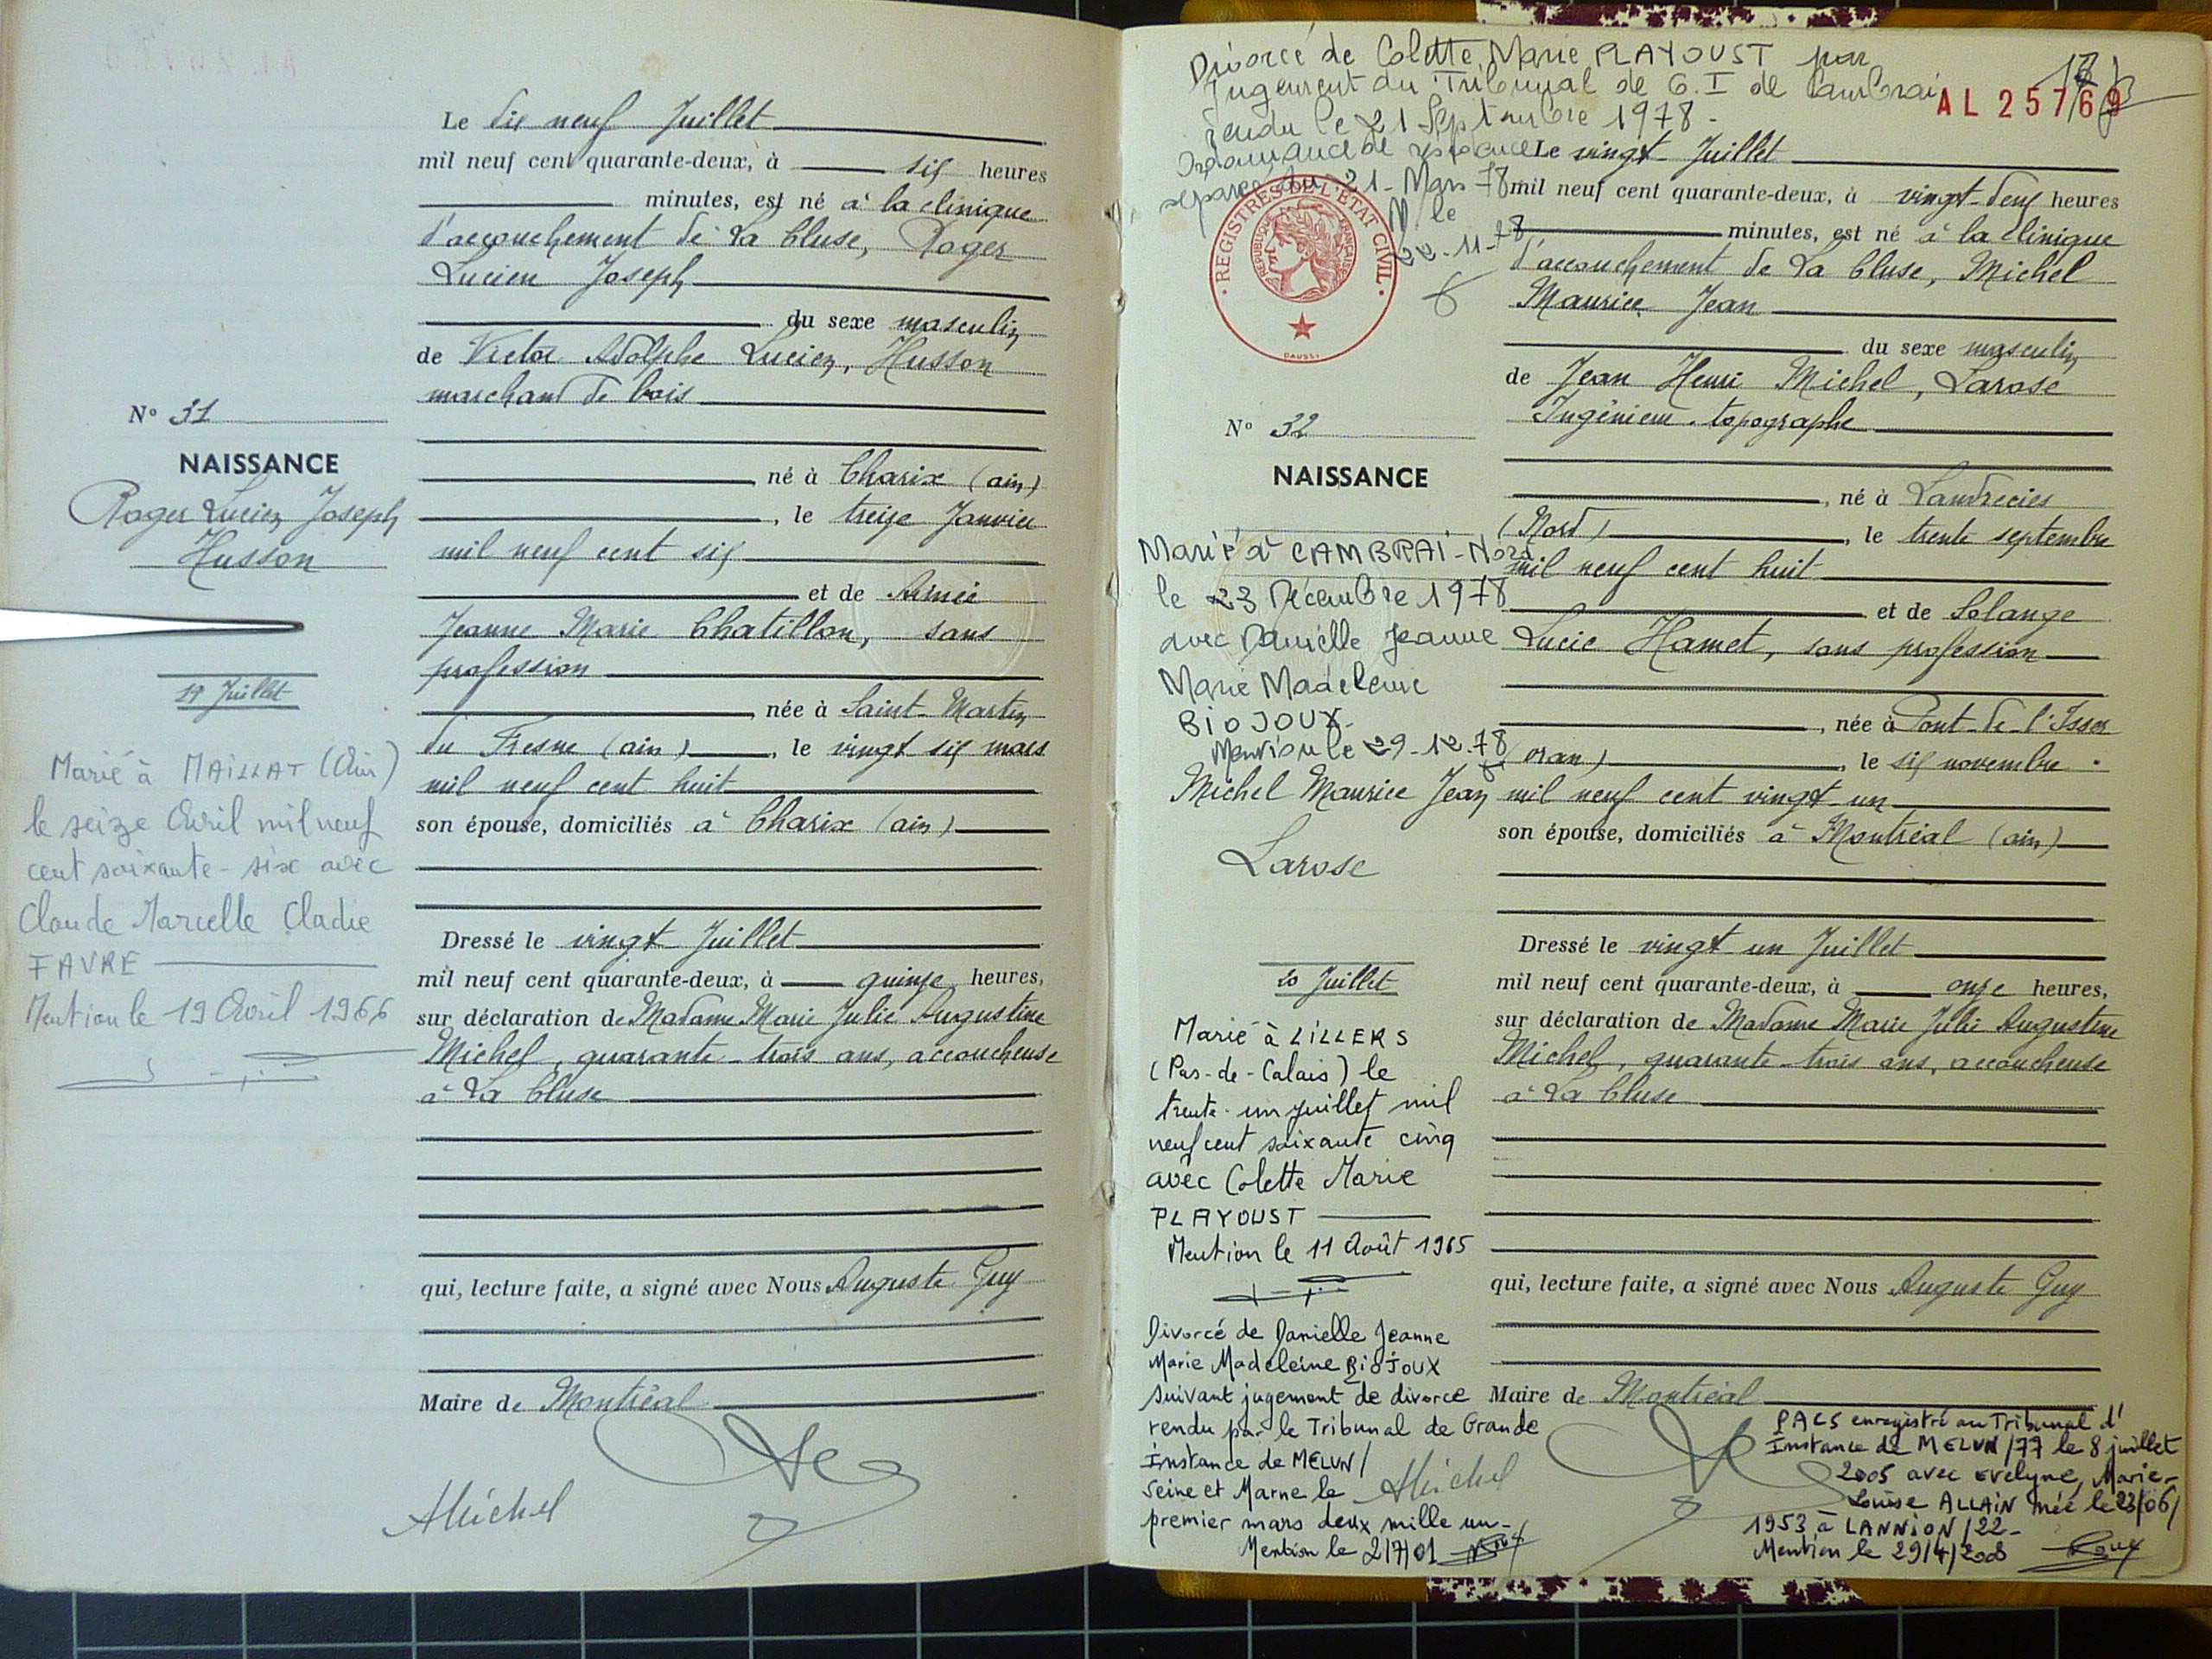 Le dix neuf Juillet
mil neuf cent quarante-deux, à six heures
minutes, est né à la clinique
d'accouchement de La Cluse, Roger
Lucien Joseph
du sexe masculin
de Victor Adolphe Lucien, Husson
marchand de bois
né à Charix (ain)
, le treize Janvier
mil neuf cent six
et de Aimée
Jeanne Marie Chatillon, sans
profession
, née à Saint-Martin
du Fresne (ain), le vingt six mars
mil neuf cent huit
son épouse, domiciliés à Charix (ain)
Dressé le vingt Juillet
mil neuf cent quarante-deux, à quinze heures,
sur déclaration de Madame Marie Julie Augustine
Michel, quarante-trois ans, accoucheuse
à La Cluse
qui, lecture faite, a signé avec Nous Auguste Guy
Maire de Montréal
Michel
N° 31
NAISSANCE
Roger Lucien Joseph
Husson
19 Juillet
Marié à MAILLAT (Ain)
le seize Avril mil neuf
cent soixante-six avec
Claude Marcelle Cladie
FAVRE
Mention le 19 Avril 1966
Divorcé de Colette Marie PLAYOUST par
Jugement du Tribunal de G.I de Cambrai
rendu le 21 Septembre 1978.
Ordonnance de résidence
séparée du 21-Mars 78
le
22-11-78
AL 25769
REGISTRES DE L'ÉTAT CIVIL
RÉPUBLIQUE FRANÇAISE
DAUSSI
Le vingt Juillet
mil neuf cent quarante-deux, à vingt-deux heures
minutes, est né à la clinique
d'accouchement de La Cluse, Michel
Maurice Jean
du sexe masculin
de Jean Henri Michel, Larose
Ingénieur-topographe
, né à Landrecies
(Nord), le trente septembre
mil neuf cent huit
et de Solange
Lucie Hamet, sans profession
, née à Pont-de-l'Isser
(oran), le six novembre
mil neuf cent vingt-un
son épouse, domiciliés à Montréal (ain)
Dressé le vingt un Juillet
mil neuf cent quarante-deux, à onze heures,
sur déclaration de Madame Marie Julie Augustine
Michel, quarante-trois ans, accoucheuse
à La Cluse
qui, lecture faite, a signé avec Nous Auguste Guy
Maire de Montréal
Michel
N° 32
NAISSANCE
Marié à CAMBRAI-Nord
le 23 Décembre 1978
avec Danielle Jeanne
Marie Madeleine
BIOJOUX.
Mention le 29-12-78
Michel Maurice Jean
Larose
20 Juillet
Marié à LILLERS
(Pas-de-Calais) le
trente-un juillet mil
neuf cent soixante cinq
avec Colette Marie
PLAYOUST
Mention le 11 Août 1965
Divorcé de Danielle Jeanne
Marie Madeleine BIOJOUX
suivant jugement de divorce
rendu par le Tribunal de Grande
instance de MELUN/
Seine et Marne le
premier mars deux mille un-
Mention le 2/7/01
PACS enregistré au Tribunal d'
Instance de MELUN/77 le 8 juillet
2005 avec Evelyne, Marie-
Louise ALLAIN née le 23/06/
1953 à LANNION/22-
Mention le 29/4/2008